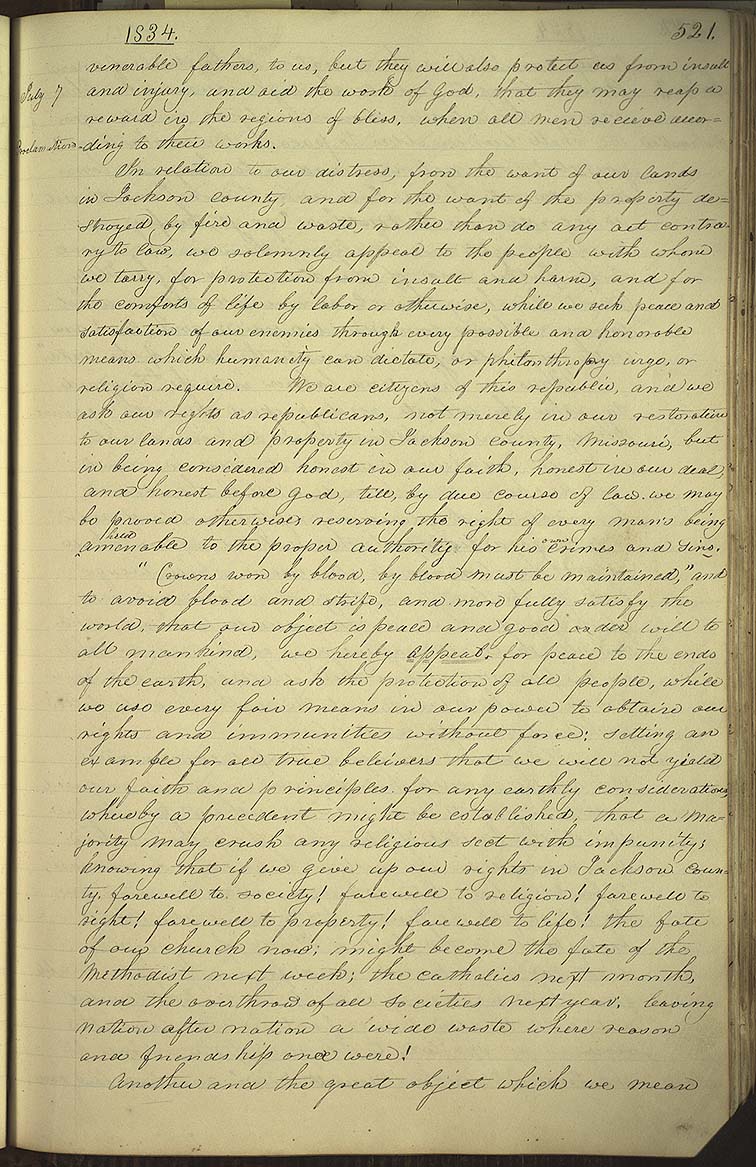 1834.
521.
venerable fathers, to us, but they will also protect us from insult
July 7
and injury, and aid the work of God, that they may reap a
reward in the regions of bliss, when all men recieve accor=
Proclamation
-ding to their works.
In relation to our distress, from the want of our lands
in Jackson county, and for the want of the property de=
stroyed by fire and waste, rather than do any act contra-
ry to law, we solemnly appeal to the people with whom
we tarry, for protection from insult and harm, and for
the comforts of life by labor or otherwise, while we seek peace and
satisfaction of our enemies through every possible and honorable
means which humanity can dictate, or philanthropy urge, or
religion require. We are citizens of this republic, and we
ask our rights as republicans, not merely in our restoration
to our lands and property in Jackson county, Missouri, but
in being considered honest in our faith, honest in our deal,
and honest before God, till, by due course of law. we may
be proved otherwise; reserving the right of every man's being
amenable to the proper authority for his own crimes and sins.
"Crowns won by blood, by blood must be maintained," and
to avoid blood and strife, and more fully satisfy the
world, that our object is peace and good will to
all mankind, we hereby appeal, for peace to the ends
of the earth, and ask the protection of all people, while
we use every fair means in our power to obtain our
rights and immunities without force; setting an
example for all true beleivers that we will not yield
our faith and principles for any earthly consideration,
whereby a precedent might be established, that a ma=
jority may crush any religious sect with impunity;
knowing that if we give up our rights in Jackson coun=
ty, farewell to society! farewell to religion! farewell to
right! farewell to property! farewell to life! the fate
of our church now; might become the fate of the
Methodist next week; the catholics next month,
and the overthrow of all societies next year, leaving
nation after nation a wide waste where reason
and friendship once were!
Another and the great object which we mean